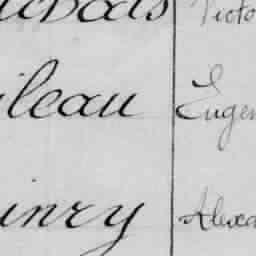 ichods Victo
ileau Eugen
inry Alexa